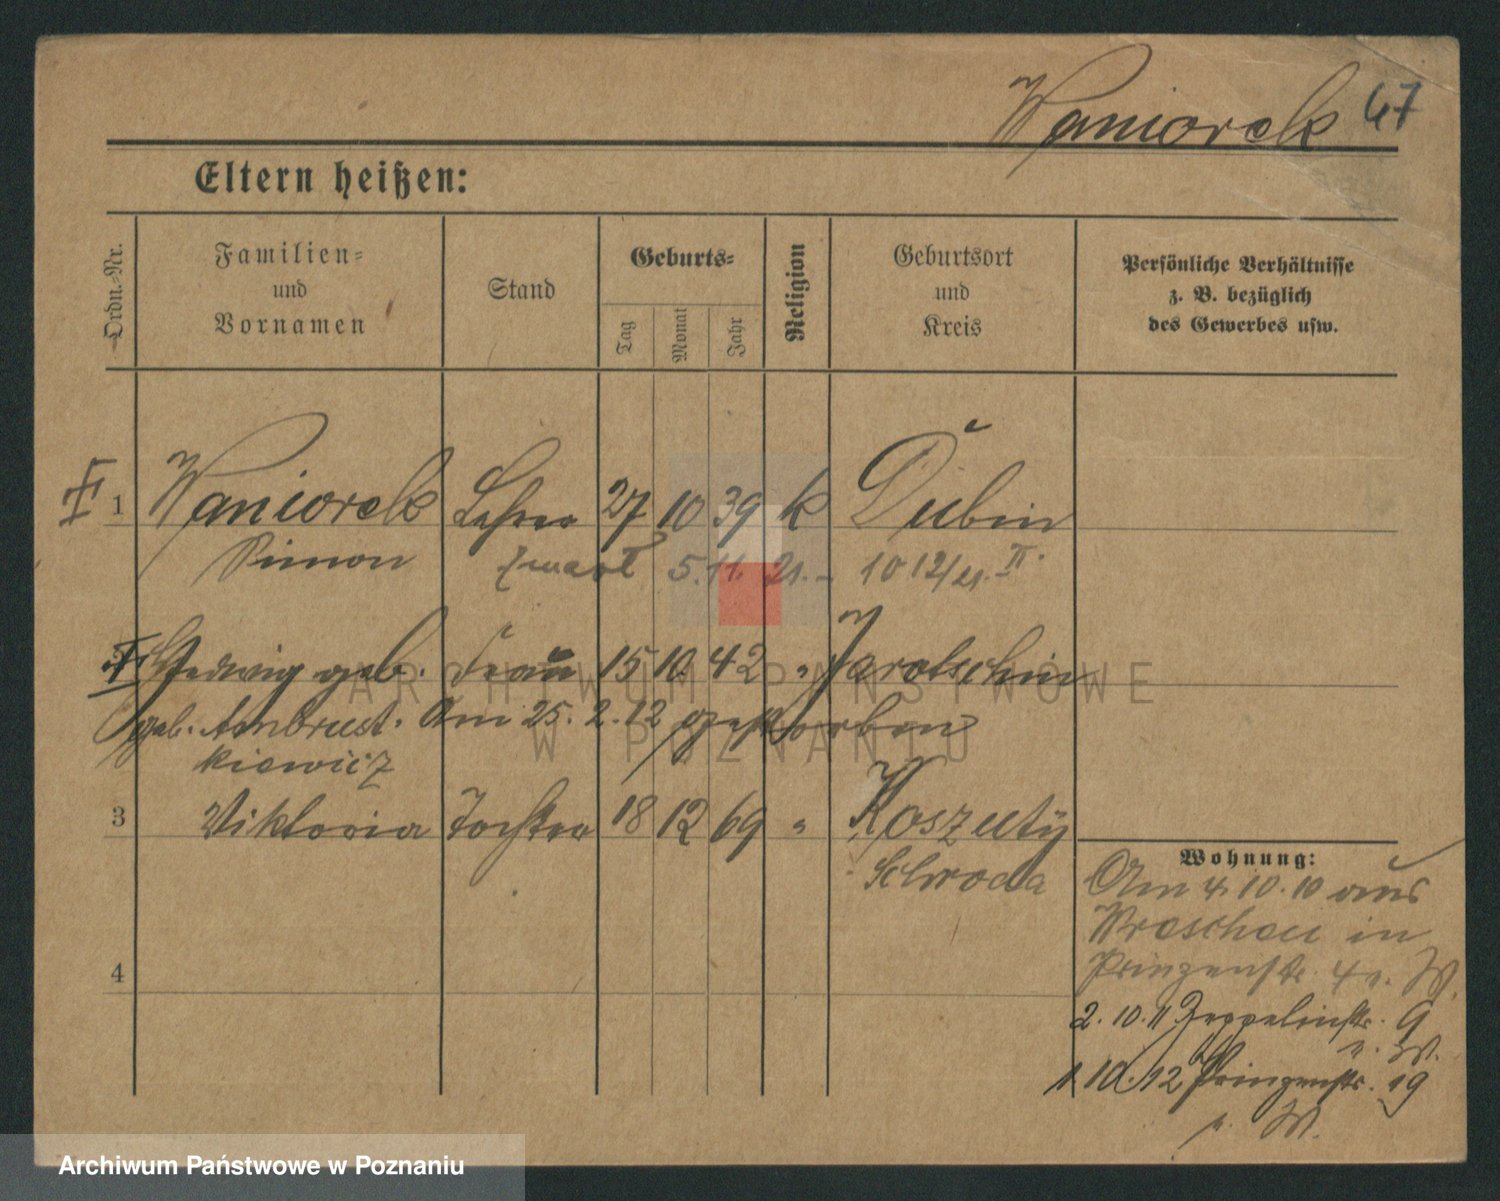 Waniorek 47
Eltern heißen:
Ordn.-Nr.
Familien-
und
Vornamen
Stand
Geburts-
Tag
Monat
Jahr
Religion
Geburtsort
und
Kreis
Persönliche Verhältnisse
z. B. bezüglich
des Gewerbes usw.
1 Waniorek Lehrer 27 10 39 k Dubin
Simon 5. 11. 21. - 10 12/21. II.
Hedwig geb. Frau 15 10. 42 " Jarotschin
geb. Ambrust. Am 25. 2. 12 gestorben
kiewicz
3 Viktoria Tochter 18 12 69 " Koszuty
Schroda
4
Wohnung:
Am 4. 10. 10 aus
Wreschen in
Prinzenstr. 4 v. W.
2. 10. 11 Zeppelinstr. 9
v. W.
1. 10. 12 Prinzenstr. 19
v. W.
ARCHIWUM PAŃSTWOWE
W POZNANIU
Archiwum Państwowe w Poznaniu